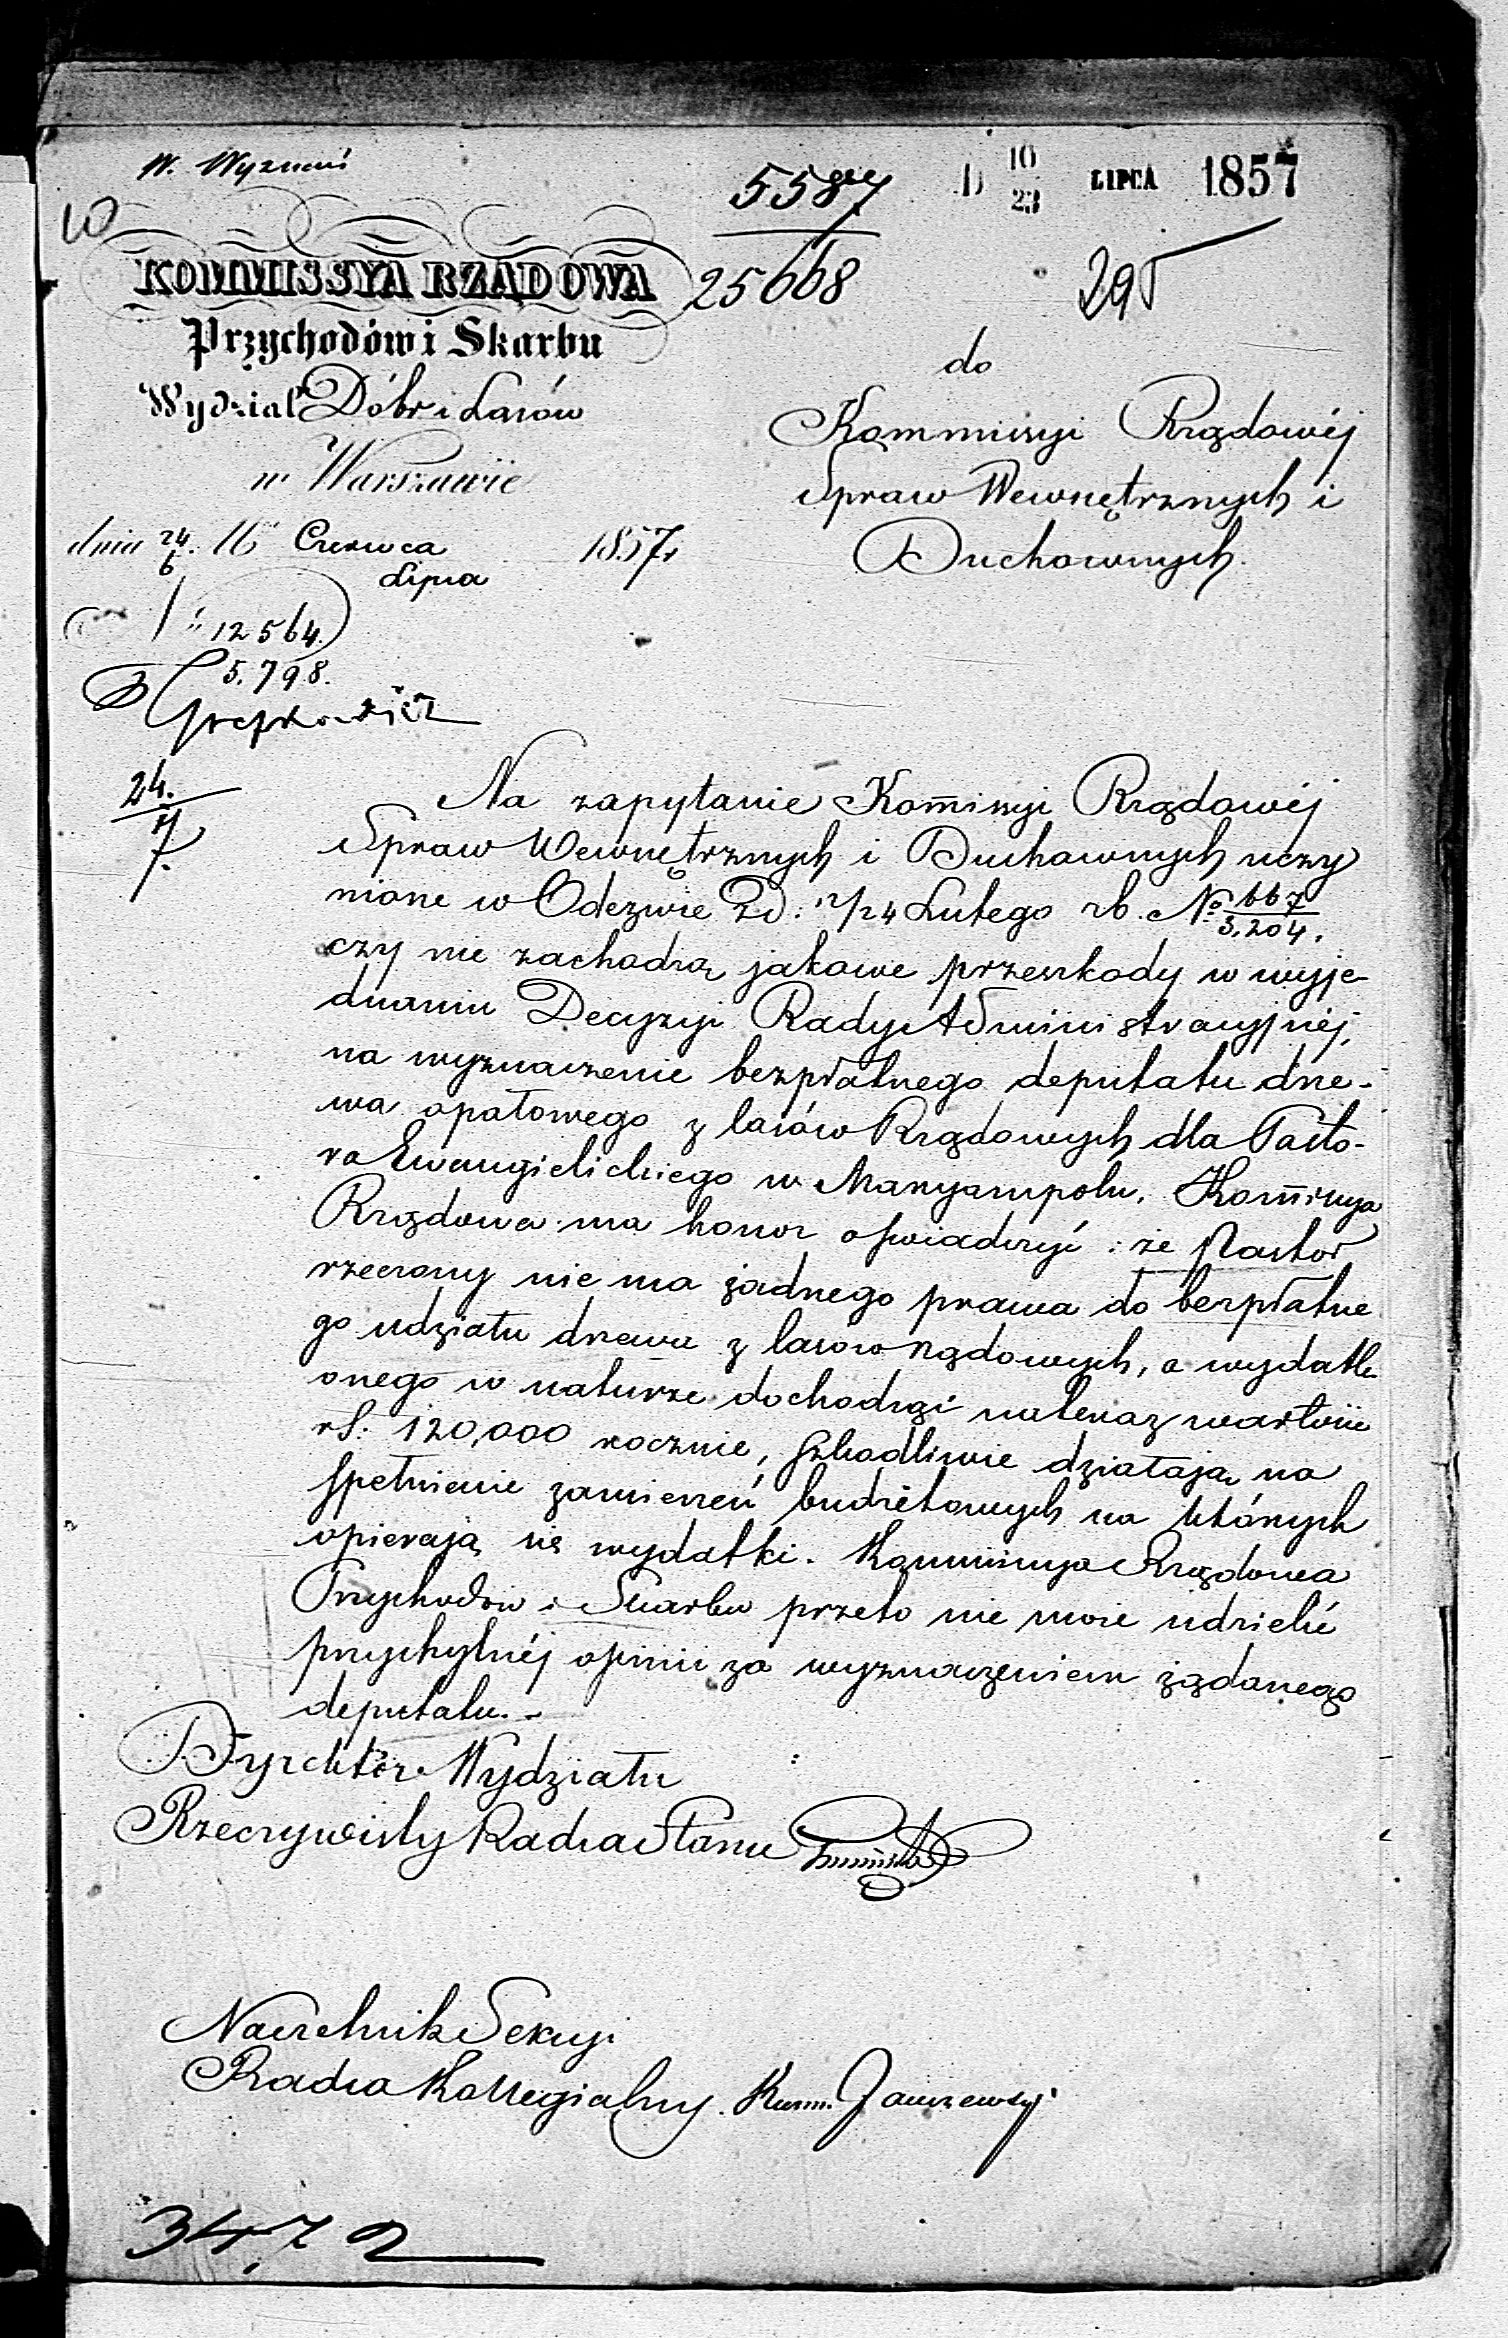 W. Wyznań
5587
25668
D 10/23 LIPCA 1857
295
KOMMISSYA RZĄDOWA
Przychodów i Skarbu
Wydział Dóbr i Lasów
w Warszawie
dnia 24/6 Czerwca/Lipca 1857 r
12564
5.798.
24./7.
do
Kommissyi Rządowéj
Spraw Wewnętrznych i
Duchownych.
Na zapytanie Kom̅issyi Rządowéj
Spraw Wewnętrznych i Duchownych uczy
nione w Odezwie z d: 12/24 Lutego rb. No 667/3,204.
czy nie zachodzą jakowe przeszkody w wyje-
dnaniu Decyzyi Rady Administracyjnéj,
na wyznaczenie bezpłatnego deputatu drze-
wa opałowego z lasów Rządowych dla Pasto-
ra Ewangielickiego w Maryampolu. Kom̅issya
Rządowa ma honor oświadczyć: że Pastor
rzeczony nie ma żadnego prawa do bezpłatne
go udziału drzewa z lasow rządowych, a wydatki
onego w naturze dochodząc na teraz wartości
rS: 120,000 rocznie, szkodliwie działają na
spełnienie zamierzeń budżetowych na których
opierają się wydatki. Kommissya Rządowa
Przychodów i Skarbu przeto nie może udzielić
przychylnéj opinii za wyznaczeniem żądanego
deputatu.-
Dyrektor Wydziału
Rzeczywisty Radca Stanu
Naczelnik Sekcyi
Radca Kollegialny.
3472